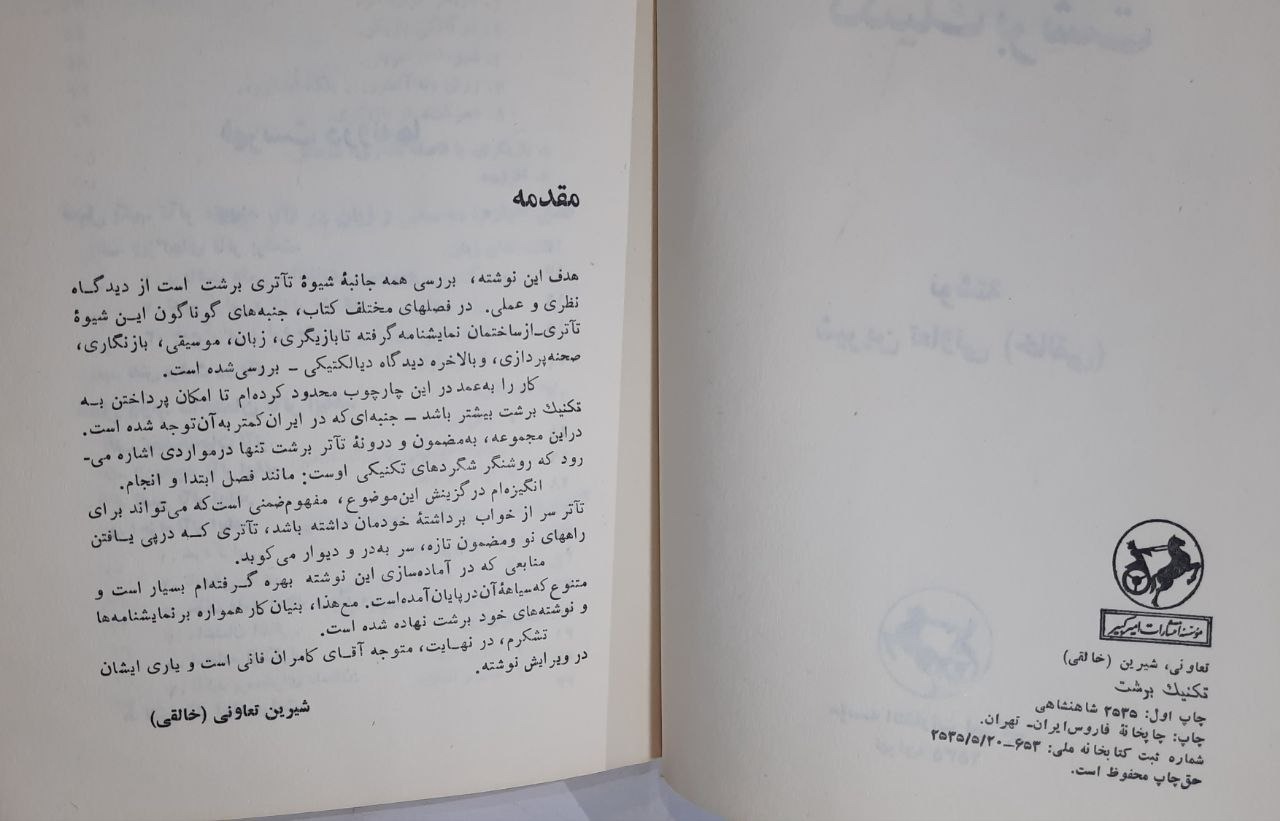 مؤسسه انتشارات امیرکبیر
تعاونی، شیرین (خالقی)
تکنیك برشت
چاپ اول: ۲۵۳۵ شاهنشاهی
چاپ: چاپخانهٔ فاروس ایران- تهران.
شماره ثبت کتابخانه ملی: ۶۵۳-۲۵۳۵/۵/۲۰
حق چاپ محفوظ است.
مقدمه
هدف این نوشته، بررسی همه جانبهٔ شیوهٔ تآتری برشت است از دیدگاه
نظری و عملی. در فصلهای مختلف کتاب، جنبه‌های گوناگون این شیوهٔ
تآتری-ازساختمان نمایشنامه گرفته تا بازیگری، زبان، موسیقی، بازنگاری،
صحنه‌پردازی، و بالاخره دیدگاه دیالکتیکی - بررسی‌شده است.
کار را به‌عمد در این چارچوب محدود کرده‌ام تا امکان پرداختن به
تکنیك برشت بیشتر باشد - جنبه‌ای‌که در ایران کمتر به‌آن توجه شده است.
دراین مجموعه، به‌مضمون و درونهٔ تآتر برشت تنها درمواردی اشاره می-
رود که روشنگر شگردهای تکنیکی اوست: مانند فصل ابتدا و انجام.
انگیزه‌ام درگزینش این‌موضوع، مفهوم‌ضمنی است‌که می‌تواند برای
تآتر سر از خواب برداشتهٔ خودمان داشته باشد، تآتری که درپی یافتن
راههای نو ومضمون تازه، سر به‌در و دیوار می‌کوبد.
منابعی که در آماده‌سازی این نوشته بهره گرفته‌ام بسیار است و
متنوع که‌سیاههٔ آن درپایان آمده‌است. مع‌هذا، بنیان کار همواره بر نمایشنامه‌ها
و نوشته‌های خود برشت نهاده شده است.
تشکرم، در نهایت، متوجه آقای کامران فانی است و یاری ایشان
در ویرایش نوشته.
شیرین تعاونی (خالقی)